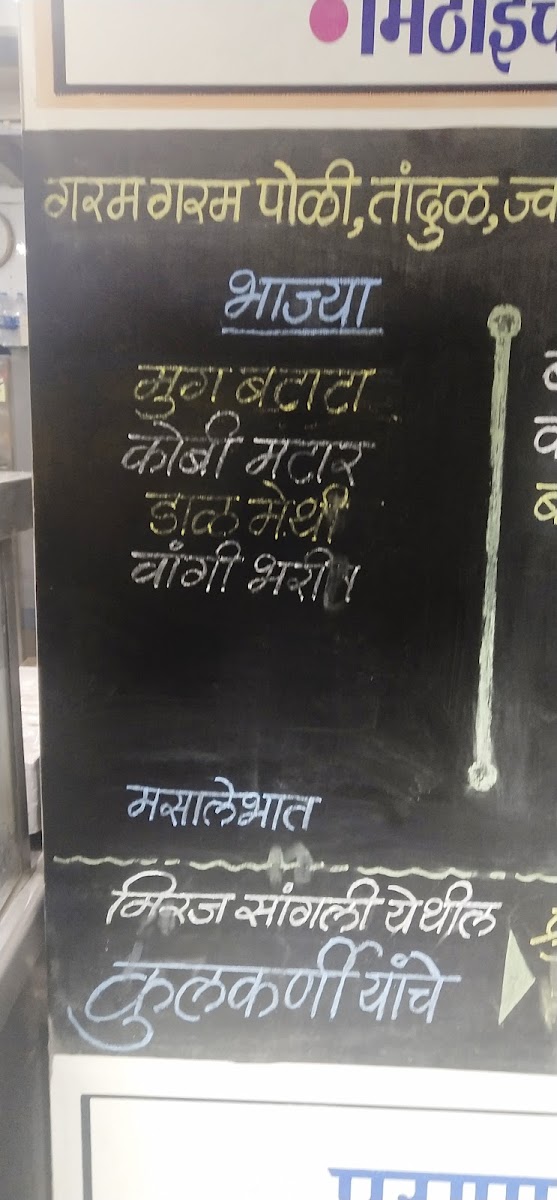 मिठाईच
गरम गरम पोळी, तांदुळ, ज्व
भाज्या
मुग बटाटा
कोबी मटार
डाळ मेथी
वांगी भरीत
मसालेभात
मिरज सांगली येथील
कुलकर्णी यांचे